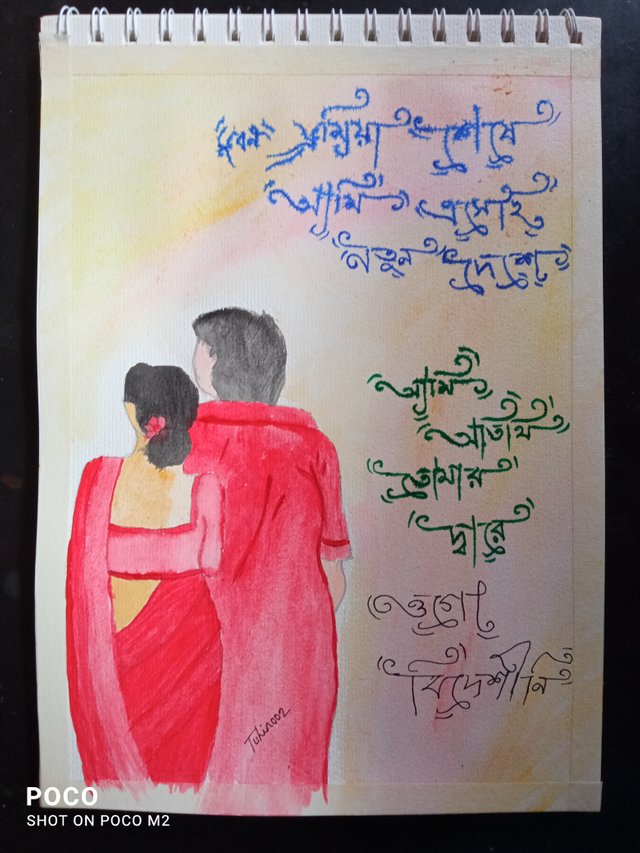 ভুবন ভ্রমিয়া শেষে
আমি এসেছি
নতুন দেশে
আমি
অতিথি
তোমার
দ্বারে
ওগো
বিদেশীনি
Tuhin002
POCO
SHOT ON POCO M2